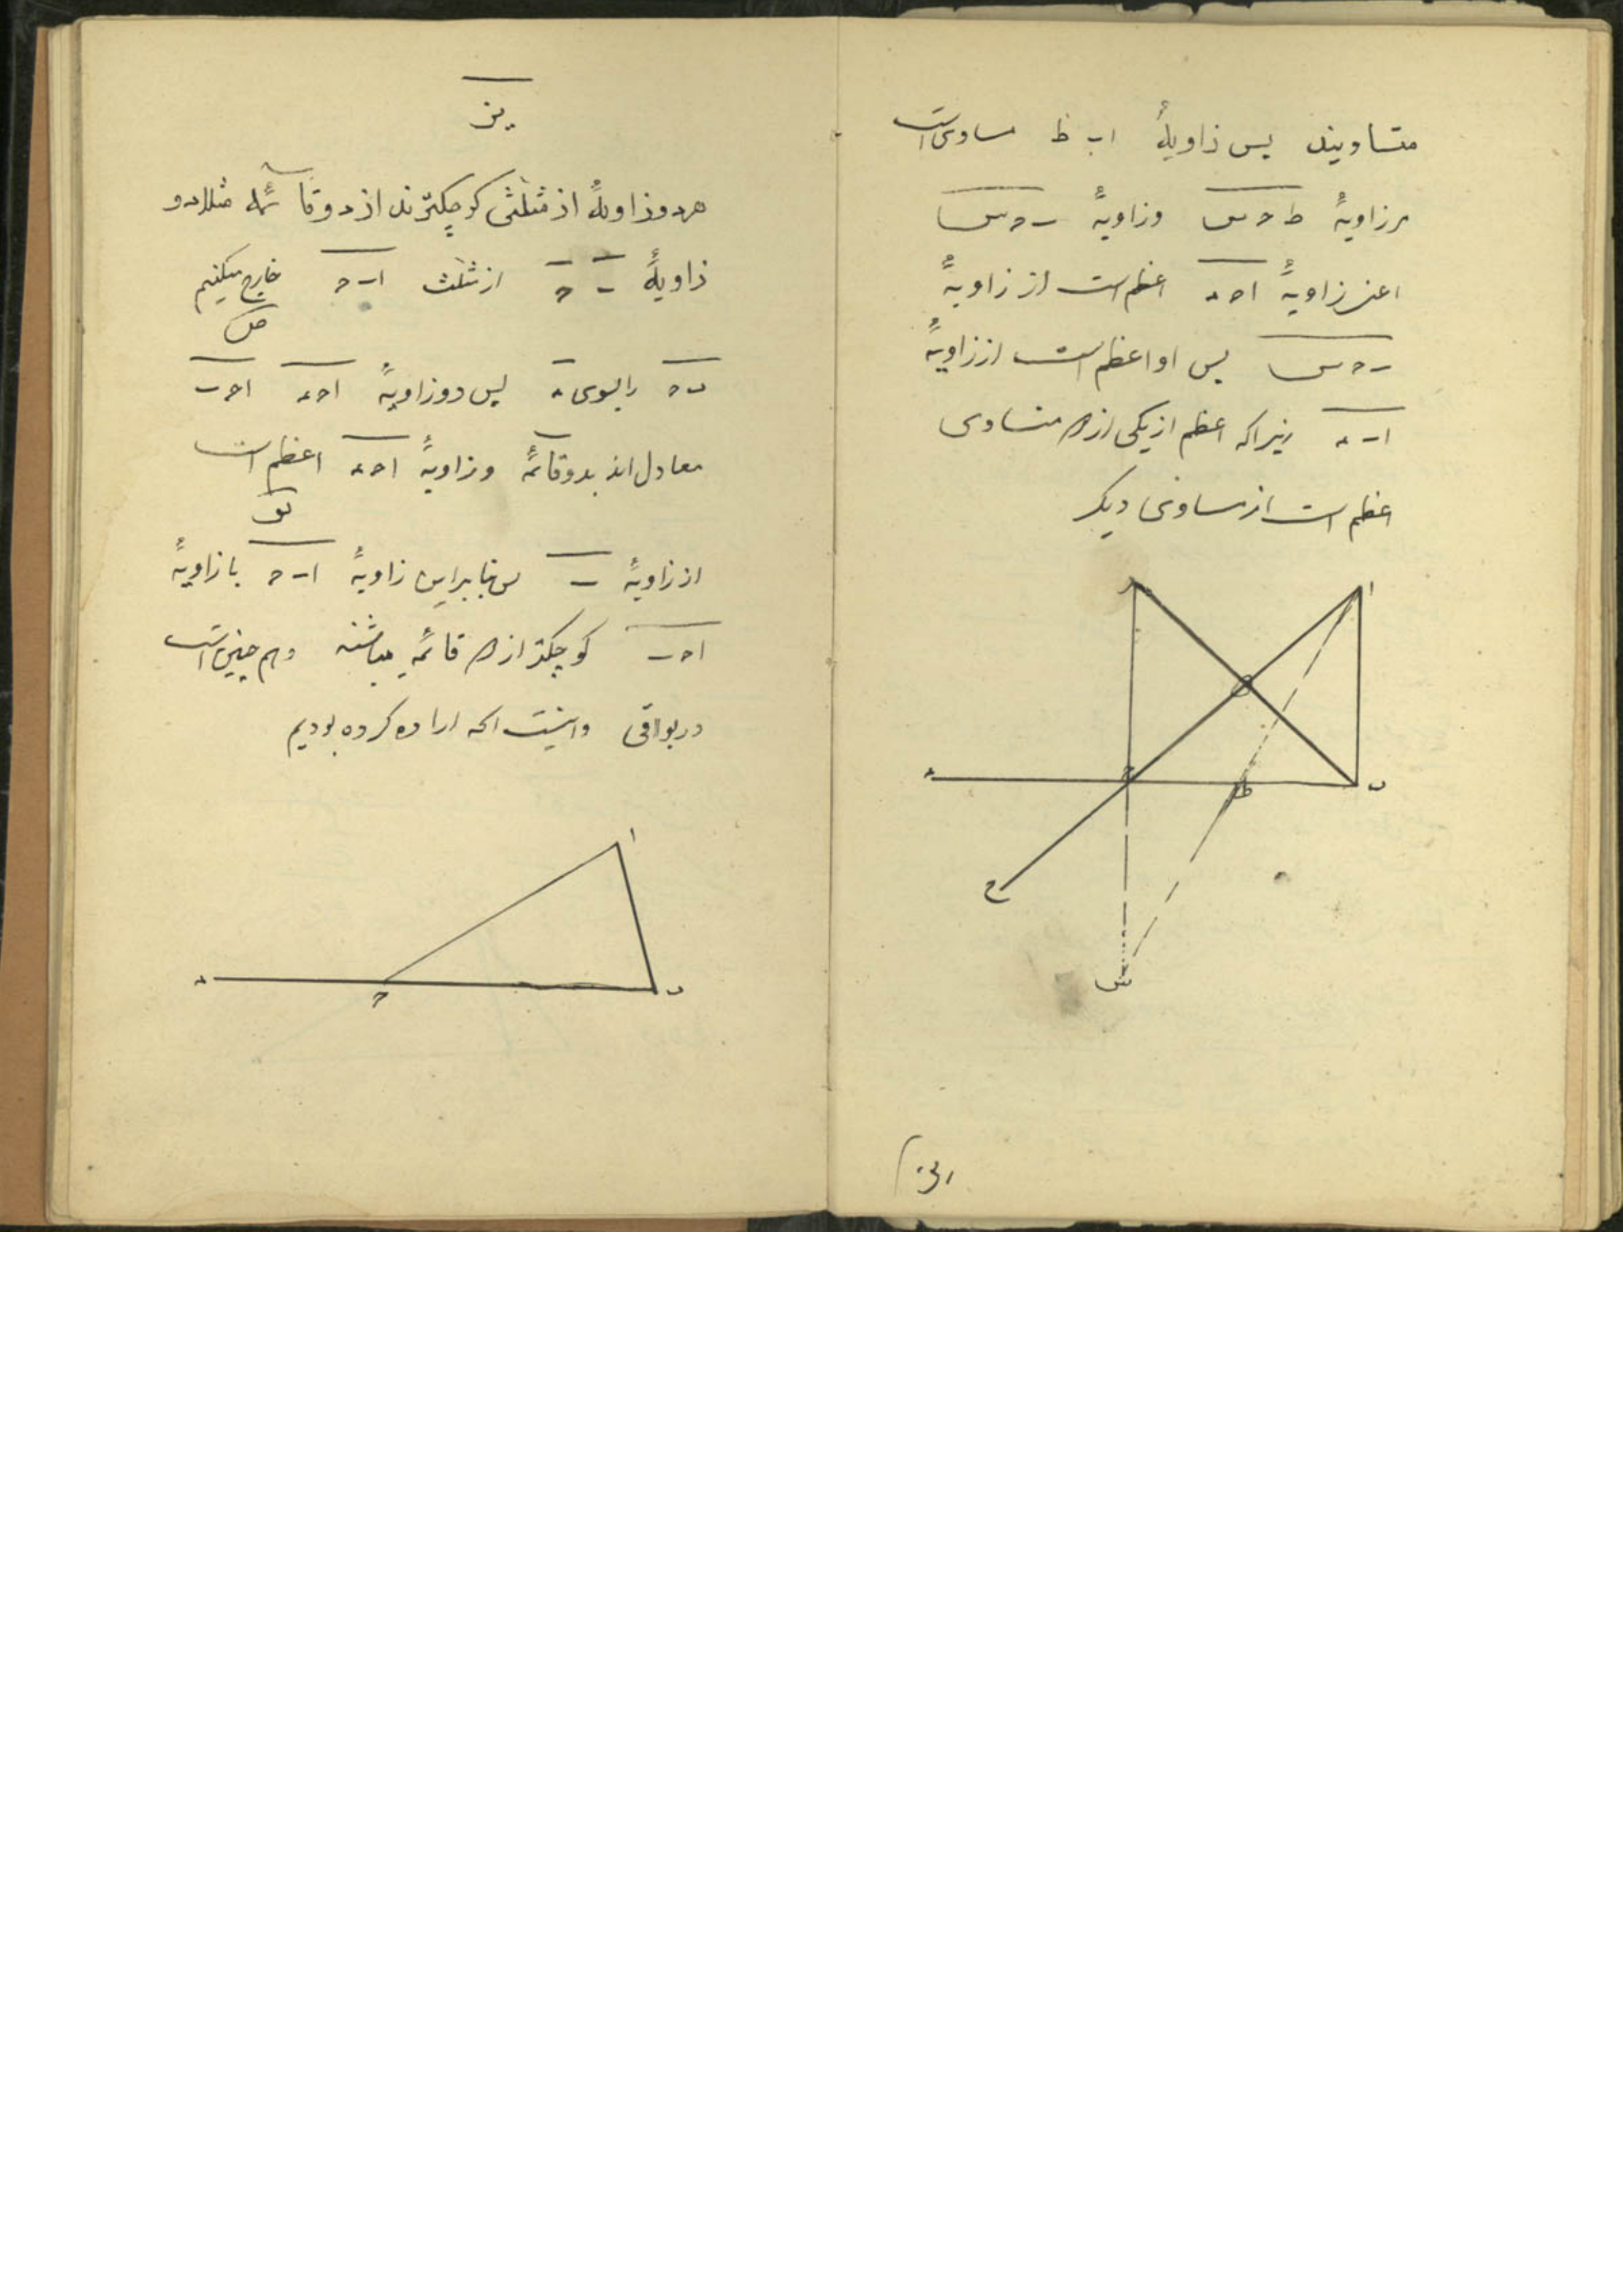 متساویند پس زاویهٔ اب ط مساوی است
برزاویهٔ ط ح س وزاویهٔ ب ح س
اعنی زاویهٔ ا ح ء اعظم است از زاویهٔ
ب ح س پس او اعظم است از زاویهٔ
ا ب ء زیرا که اعظم از یکی از متساوی
اعظم است از مساوی دیگر
ا
ب
ح
ء
ط
ج
س
یز
هر دو زاویهٔ از مثلثی کوچکترند از دو قائمه مثلا دو
زاویهٔ ب ح از مثلث ا ب ح خارج میکنیم
ب ح را بسوی ء پس دو زاویهٔ ا ح ء ا ح ب
معادل اند بدو قائمهٔ وزاویهٔ ا ح ء اعظم است
از زاویهٔ ب پس بنابراین زاویهٔ ا ب ح با زاویهٔ
ا ح ب کوچکتر از قائمه میباشند وهم چنین است
در بواقی واینست آنکه اراده کرده بودیم
ا
ب
ح
ء